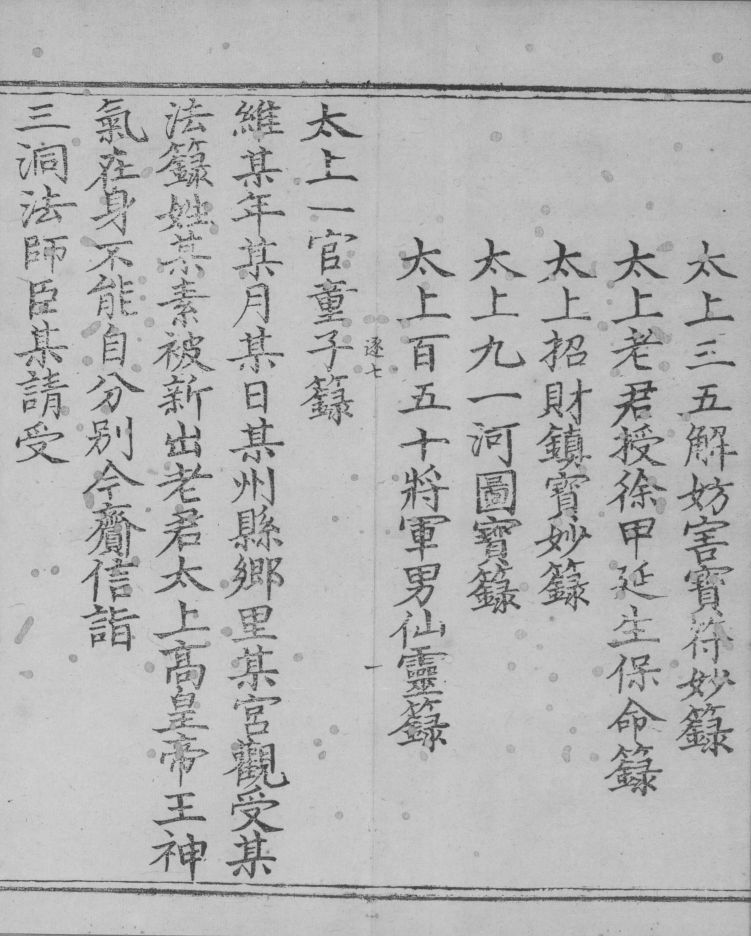 太上三五解妨害寳符妙籙
太上老君授徐甲延生保命籙
太上招財鎮寳妙籙
太上九一河圖寳籙
太上百五十將軍男仙靈籙
逐七
一
太上一官童子籙
維某年某月某日某州縣鄉里某宮觀受某
法籙姓某素被新出老君太上高皇帝王神
氣在身不能自分別今齎信詣
三洞法師臣某請受